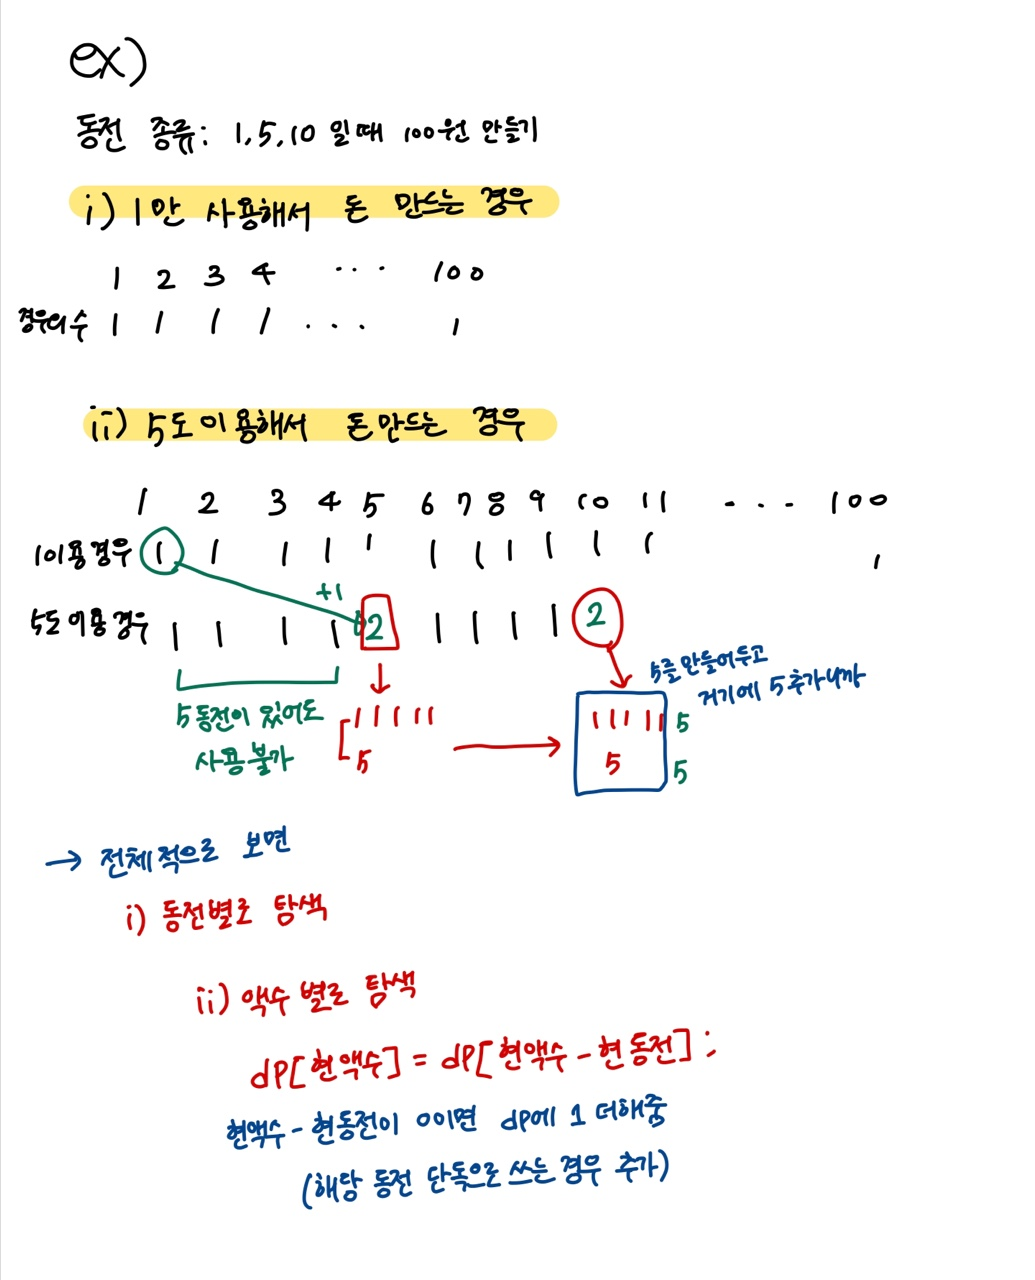 ex)
동전 종류: 1, 5, 10 일때 100원 만들기
i) 1만 사용해서 돈 만드는 경우
1 2 3 4 ... 100
경우의 수 1 1 1 1 ... 1
ii) 5도 이용해서 돈 만드는 경우
1 2 3 4 5 6 7 8 9 10 11 --- 100
1이용경우 1 1 1 1 1 1 1 1 1 1 1 1
+1
5도 이용경우 1 1 1 1 2 1 1 1 1 2
5를 만들어두고
거기에 5추가니까
5동전이 있어도
사용 불가
1 1 1 1 1
5
1 1 1 1 1 5
5 5
→ 전체적으로 보면
i) 동전별로 탐색
ii) 액수 별로 탐색
dp[현액수] = dp[현액수 - 현동전];
현액수 - 현동전이 0이면 dp에 1 더해줌
(해당 동전 단독으로 쓰는 경우 추가)